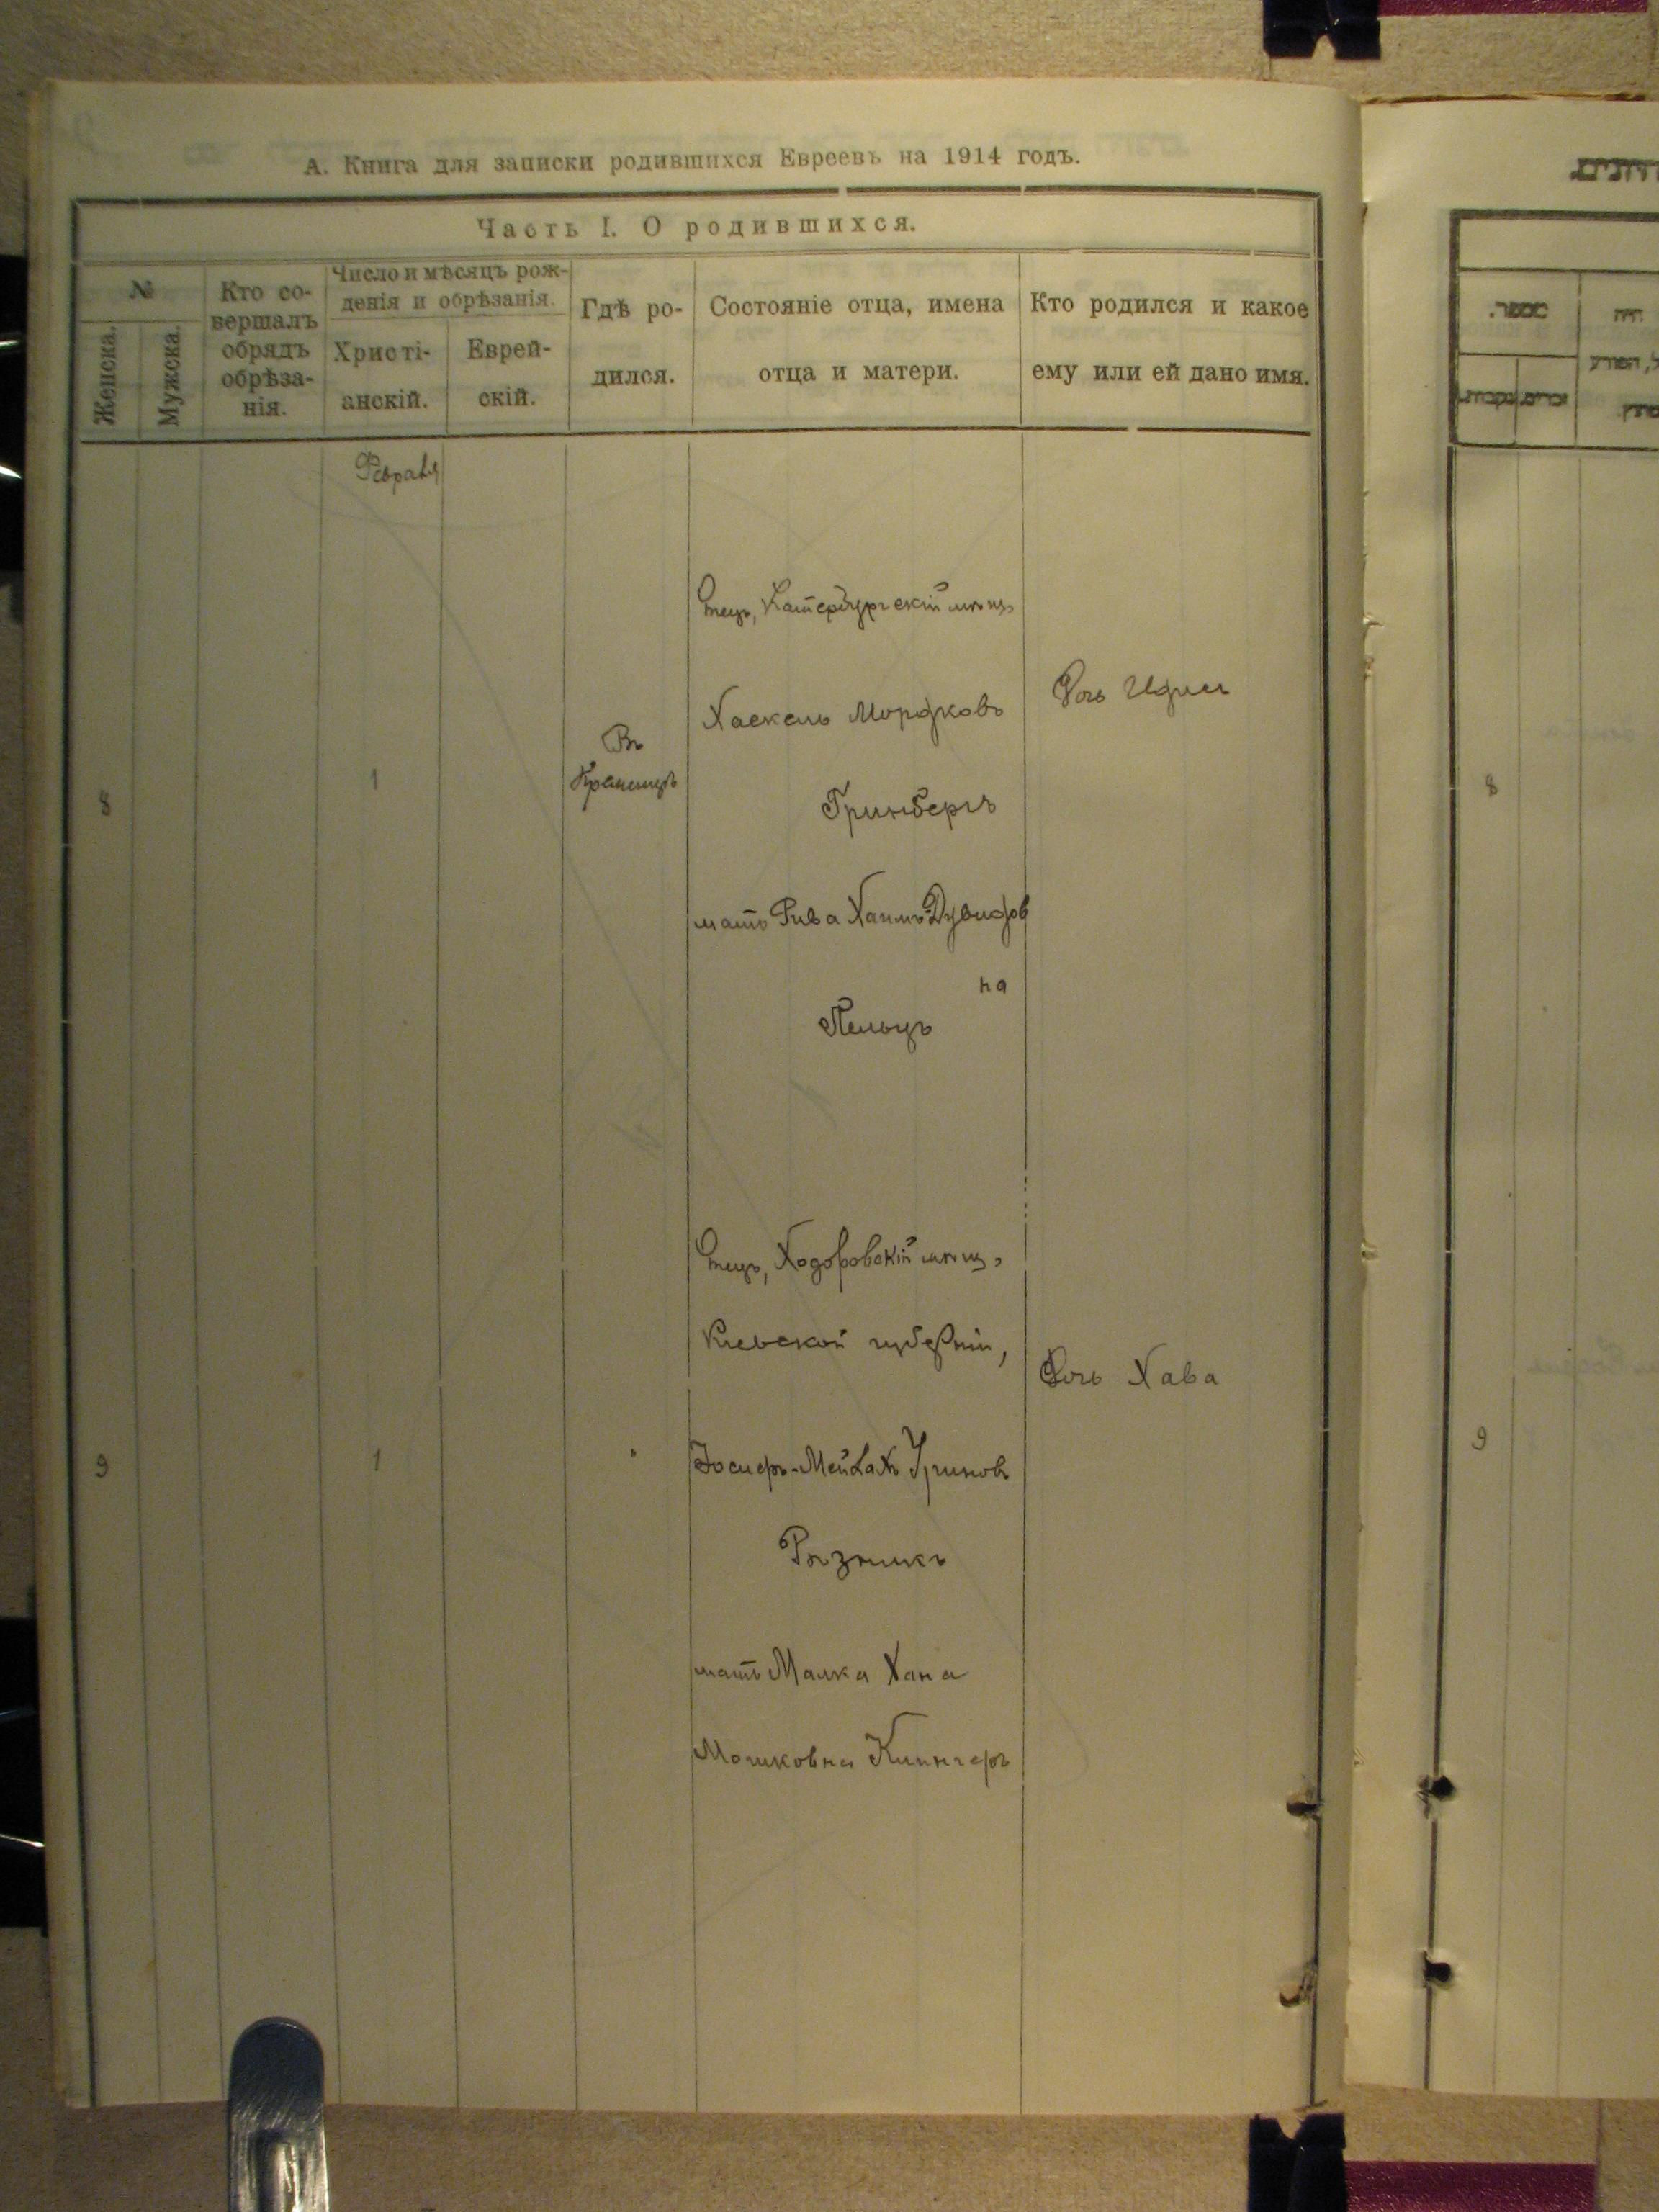 А. Книга для записки родившихся Евреевъ на 1914 годъ.
Часть I. О родившихся.
№
Женска.
Мужска.
Кто со-
вершалъ
обрядъ
обрѣза-
нія.
Число и мѣсяцъ рож-
денія и обрѣзанія.
Христі-
анскій.
Еврей-
скій.
Гдѣ ро-
дился.
Состояніе отца, имена
отца и матери.
Кто родился и какое
ему или ей дано имя.
Февраля
8
1
Въ
Кременцѣ
Отецъ, Катербургскій мѣщ.
Хаскель Мордковъ
Гринбергъ
мать Рива Хаимъ-Дувидов
на
Пельцъ
Дочь
9
1
Отецъ, Ходоровскій мѣщ.
Кіевской губерніи,
Іосифъ-Мейлахъ
Рѣзникъ
мать Малка Хана
Мошковна Клингеръ
Дочь Хава
מספר.
נקבות
זכרים
8
9